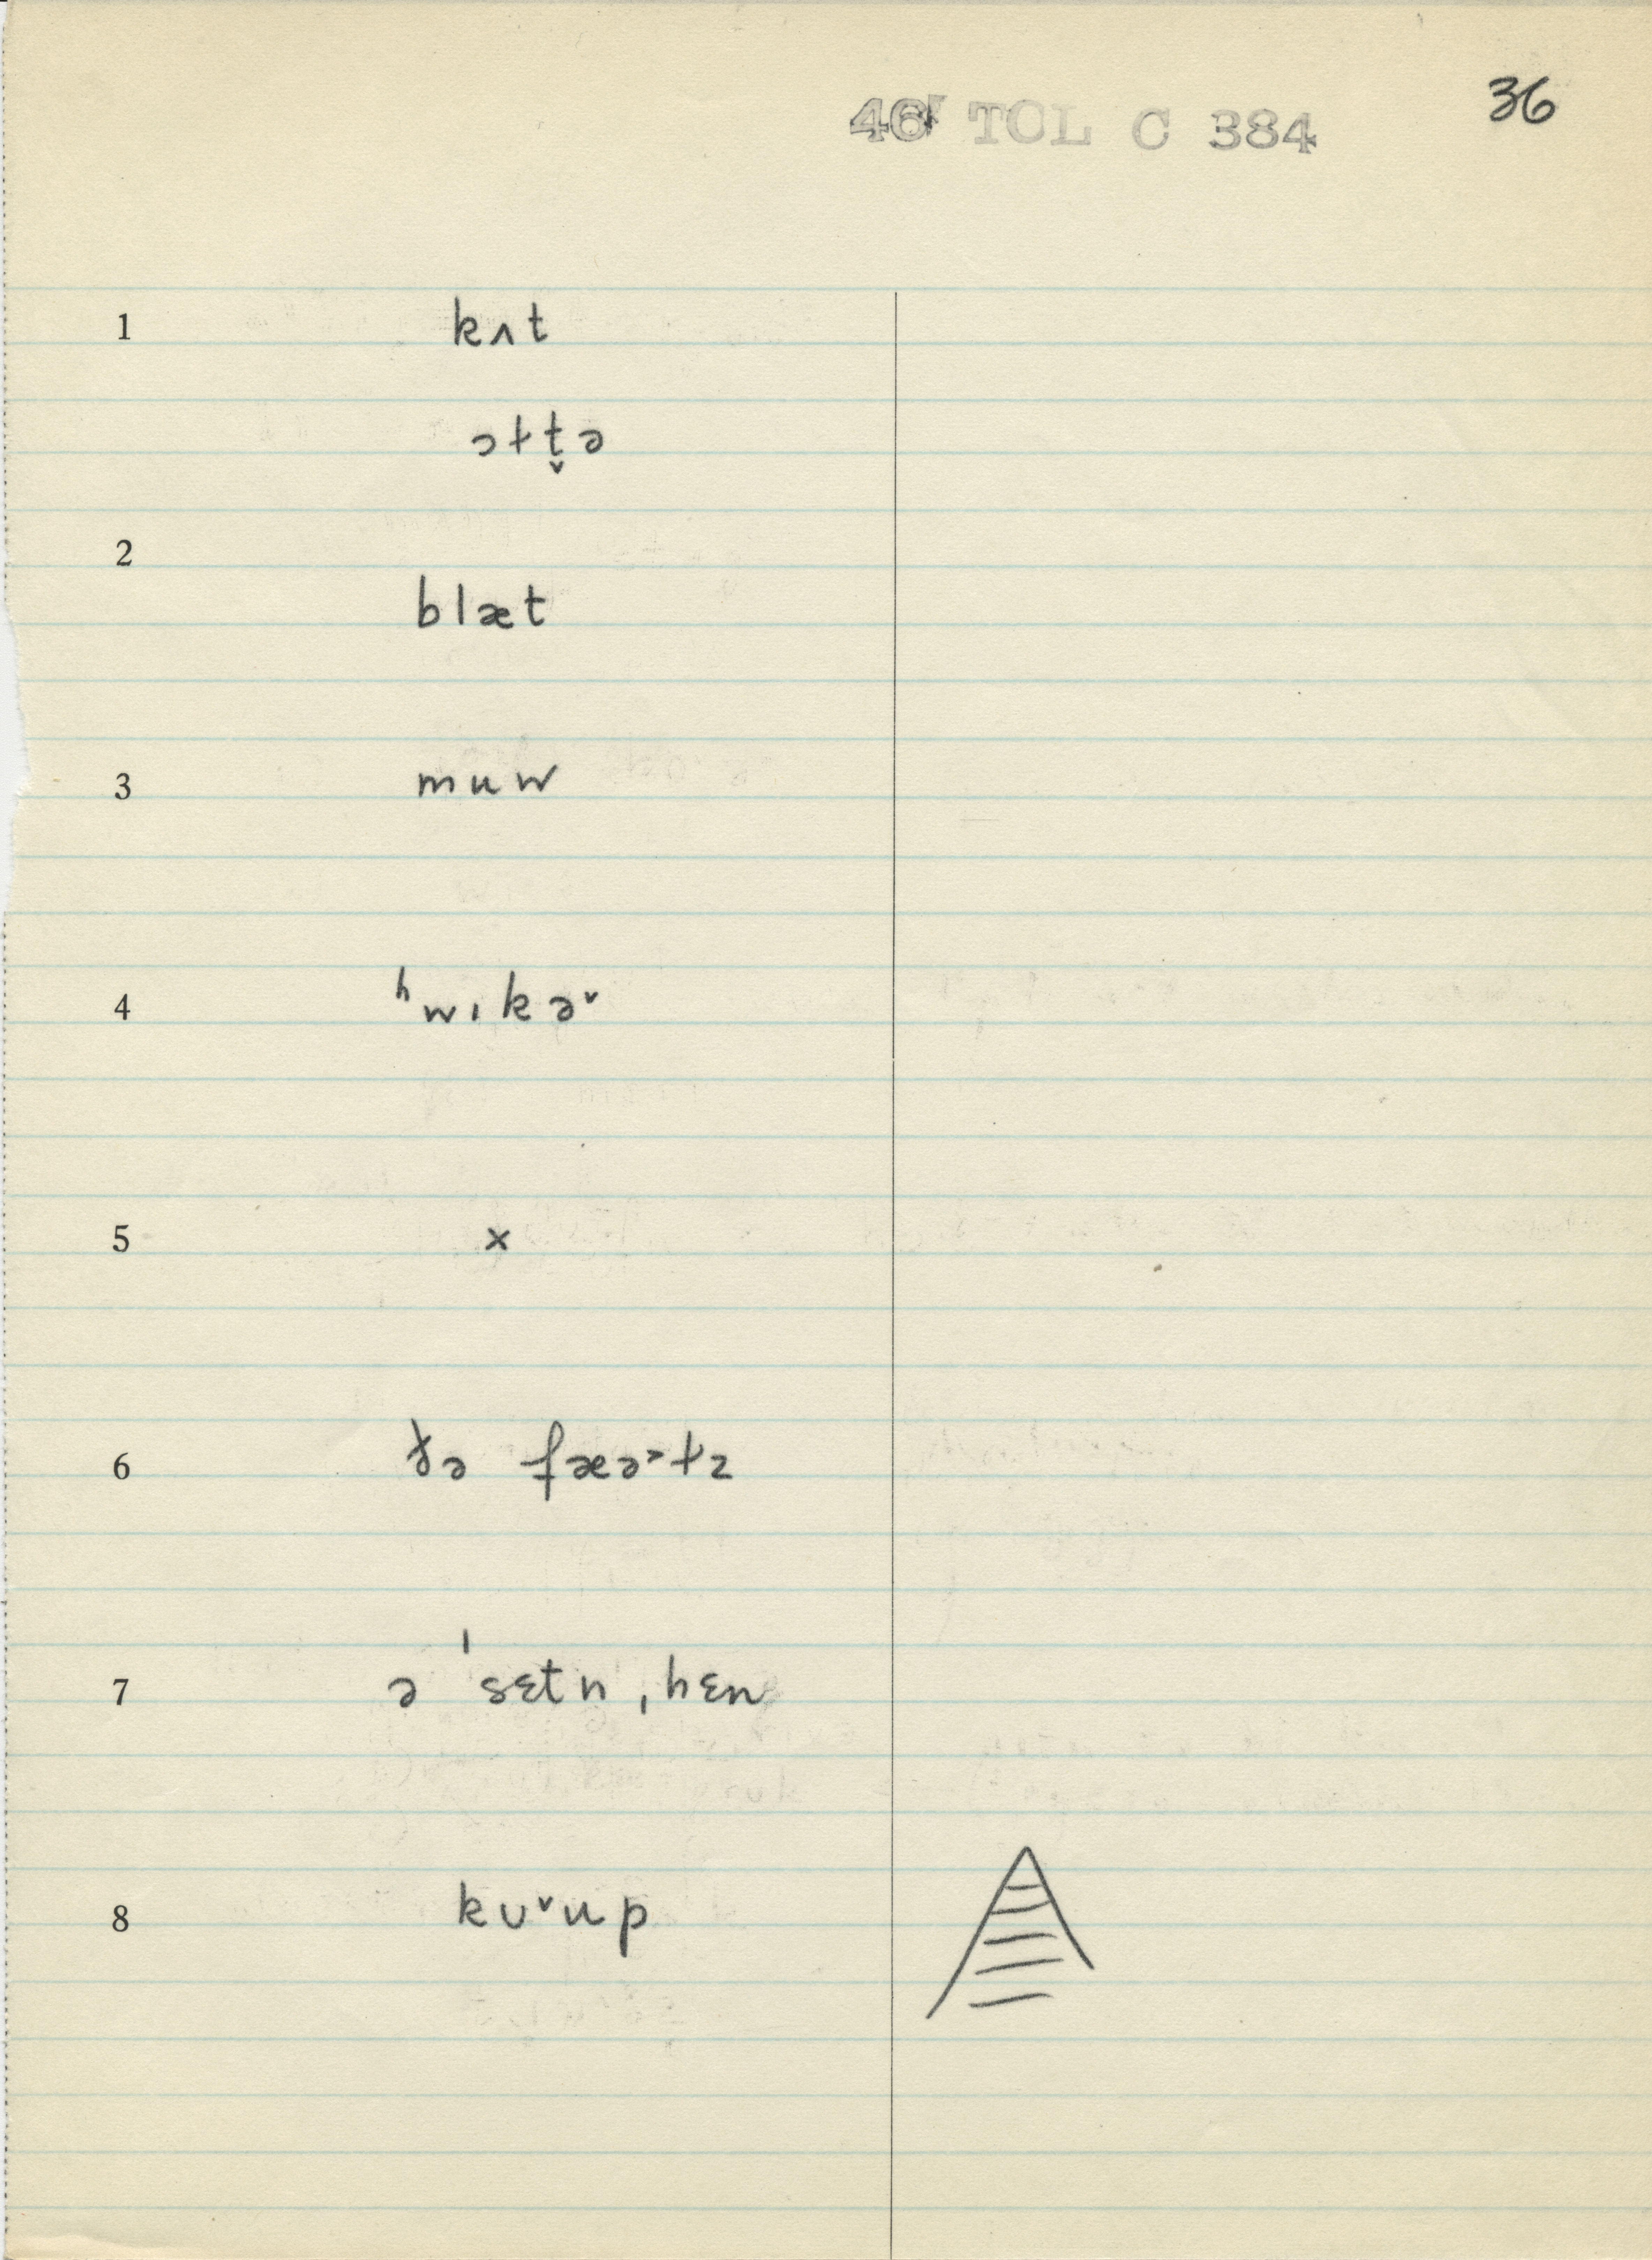 36
46 TOL C 384
1 kʌt
ɔɫt̬ə
2
blæt
3 muw
4 ʰwɪkə˅
5 x
6 ðə fæə˃ɫz
7 ə ˈsɛtn ˌhɛn
8 kʊ˅up